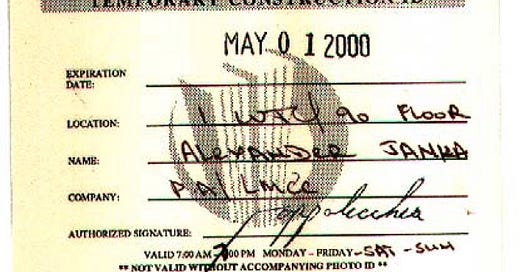 TEMPORARY CONSTRUCTION ID
MAY 0 1 2000
EXPIRATION
DATE:
LOCATION: 1 WTC/ 90 FLOOR
NAME: ALEXANDER JANKA
COMPANY: PA/LMCC
AUTHORIZED SIGNATURE:
VALID 7:00 AM - 7:00 PM MONDAY - FRIDAY - SAT - SUN
** NOT VALID WITHOUT ACCOMPANYING PHOTO ID **